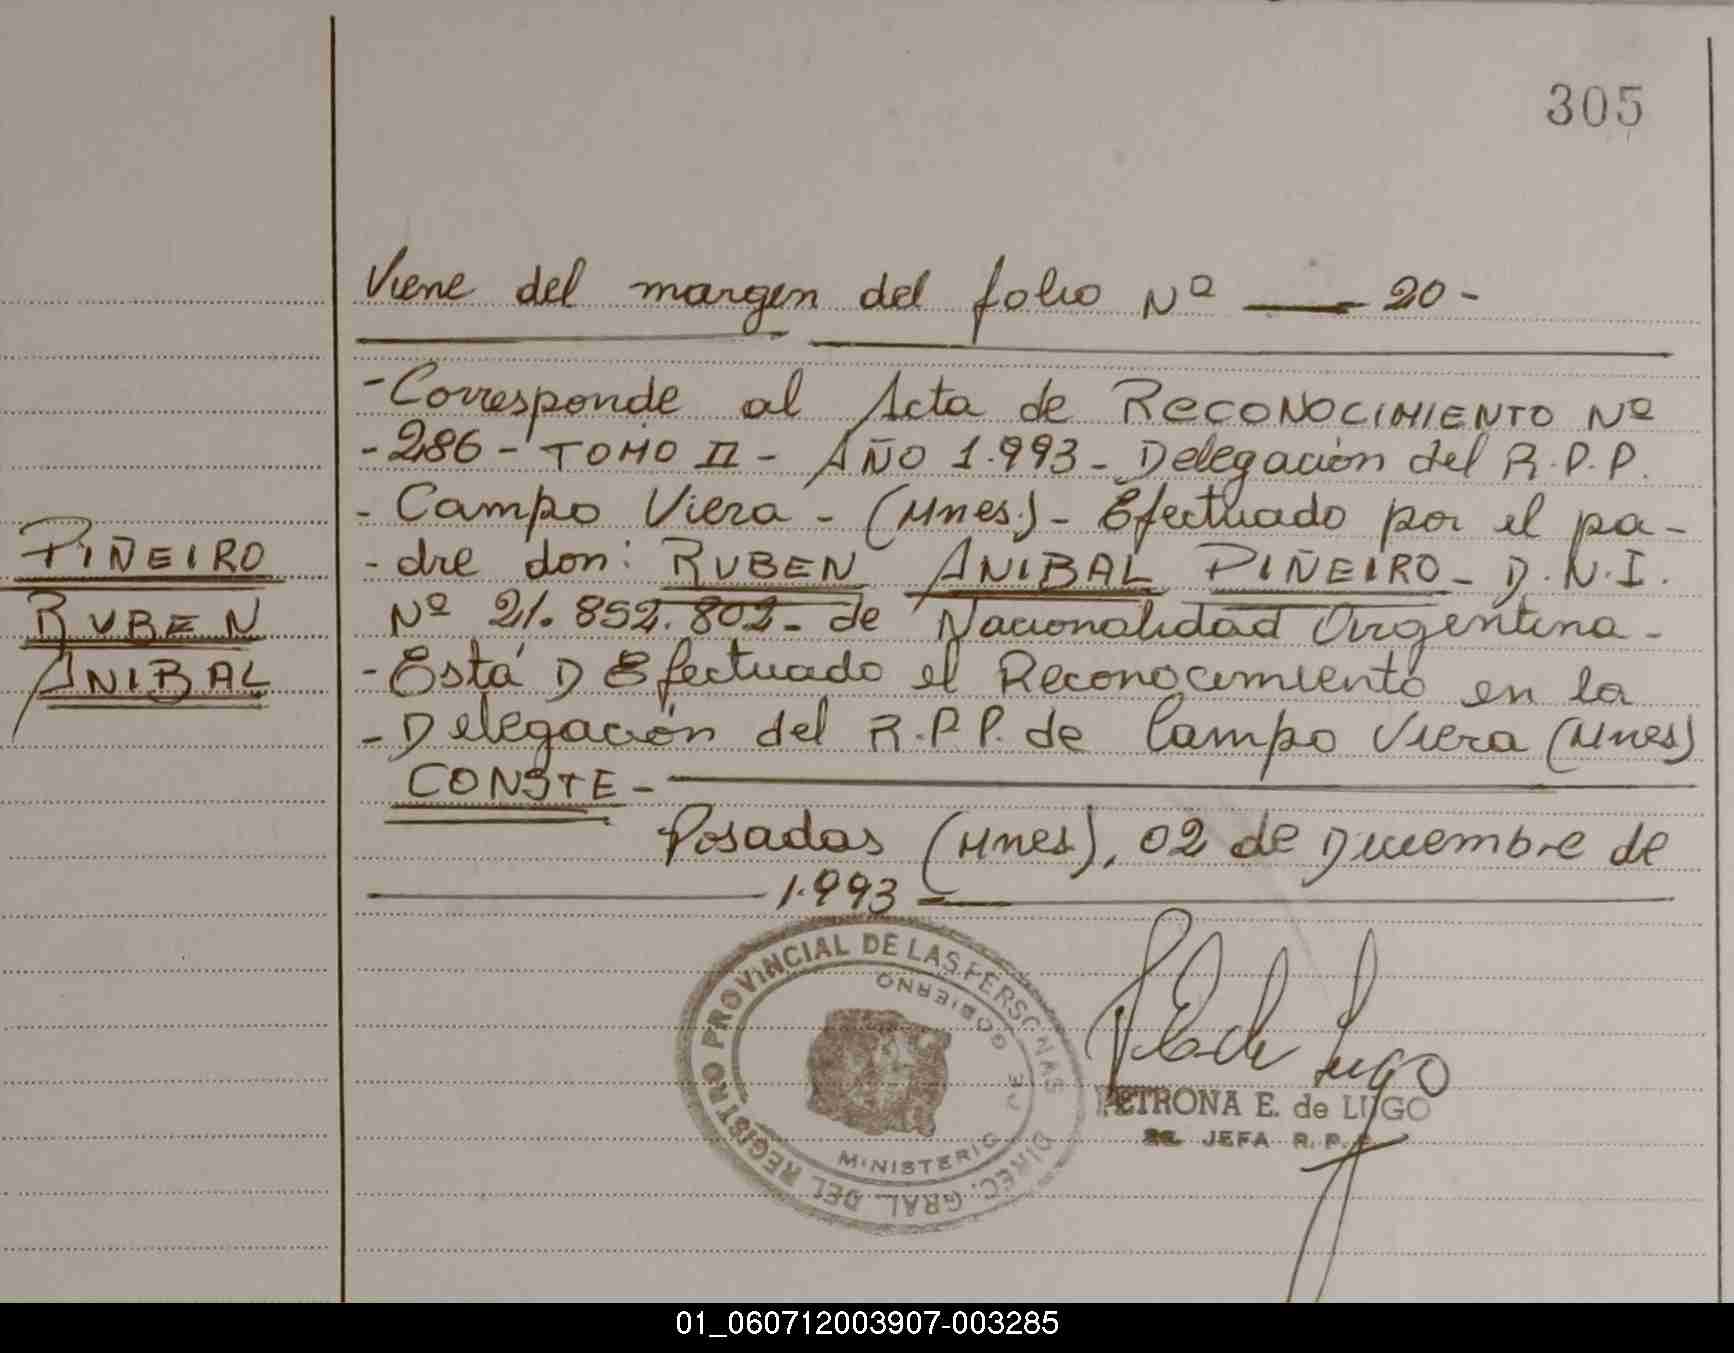 305
Viene del margen del folio Nº — 20 -
- Corresponde al Acta de RECONOCIMIENTO Nº
- 286 - TOMO II - AÑO 1.993 - Delegación del R.P.P.
- Campo Viera - (Mnes) - Efectuado por el pa-
- dre don: RUBEN ANIBAL PIÑEIRO - D.N.I.
Nº 21.852.802 - de Nacionalidad Argentina -
- Está D Efectuado el Reconocimiento en la
- Delegación del R.P.P. de Campo Viera (Mnes)
CONSTE -
Posadas (Mnes), 02 de Diciembre de
1.993 -
PIÑEIRO
RUBEN
ANIBAL
DIREC. GRAL. DEL REGISTRO PROVINCIAL DE LAS PERSONAS
MINISTERIO DE GOBIERNO
PETRONA E. de LUGO
JEFA R.P.P.
01_060712003907-003285